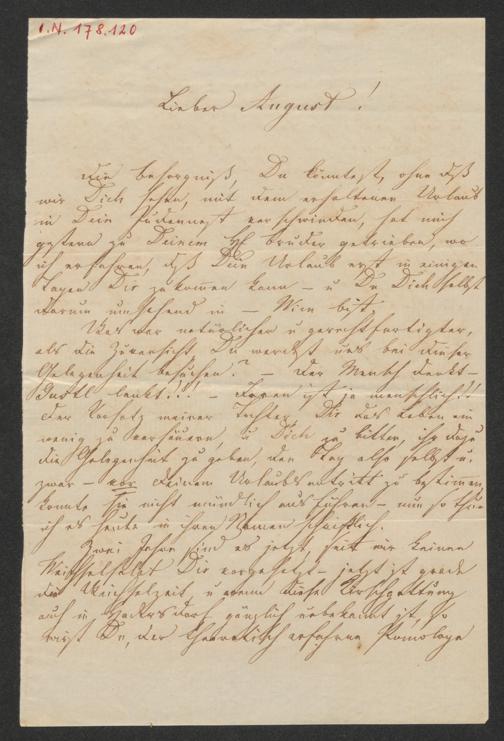 I.N. 178.120
Lieber August!
Die Besorgniß, Du könntest, ohne daß
wir Dich sehen, mit dem erhaltenen Urlaub
in Dein verschwinden, hat mich
gestern zu Deinem H. Bruder getrieben, wo
ich erfahren, daß Dein Urlaub erst in einigen
Tagen Dir zukommen kann – u Du Dich selbst
darum umsehend in – Wien bist.
Was war natürlicher u gerechtfertigter,
als die Zuversicht Du werdest uns bei dieser
Gelegenheit besuchen? – Der Mensch denkt –
Gustl lenkt!!! – Irren ist ja menschlich!!
Der Vorsatz meiner Tochter, Dir das Leben ein
wenig zu versäuern, u Dich zu bitten, ihr dazu
die Gelegenheit zu geben, den Tag also selbst u.
zwar – vor Deinem Urlaubsantritt zu bestimmen
konnte sie nicht mündlich ausführen – nun so thue
ich es heute in ihrem Namen schriftlich.
Zwei Jahre sind es jetzt, seit wir keinen
Dir vorgesetzt – jetzt ist grade
die Weichselzeit, u wenn diese
auch in gänzlich unbekannt ist, so
wirst Du, der theoretisch erfahrene Pomologe